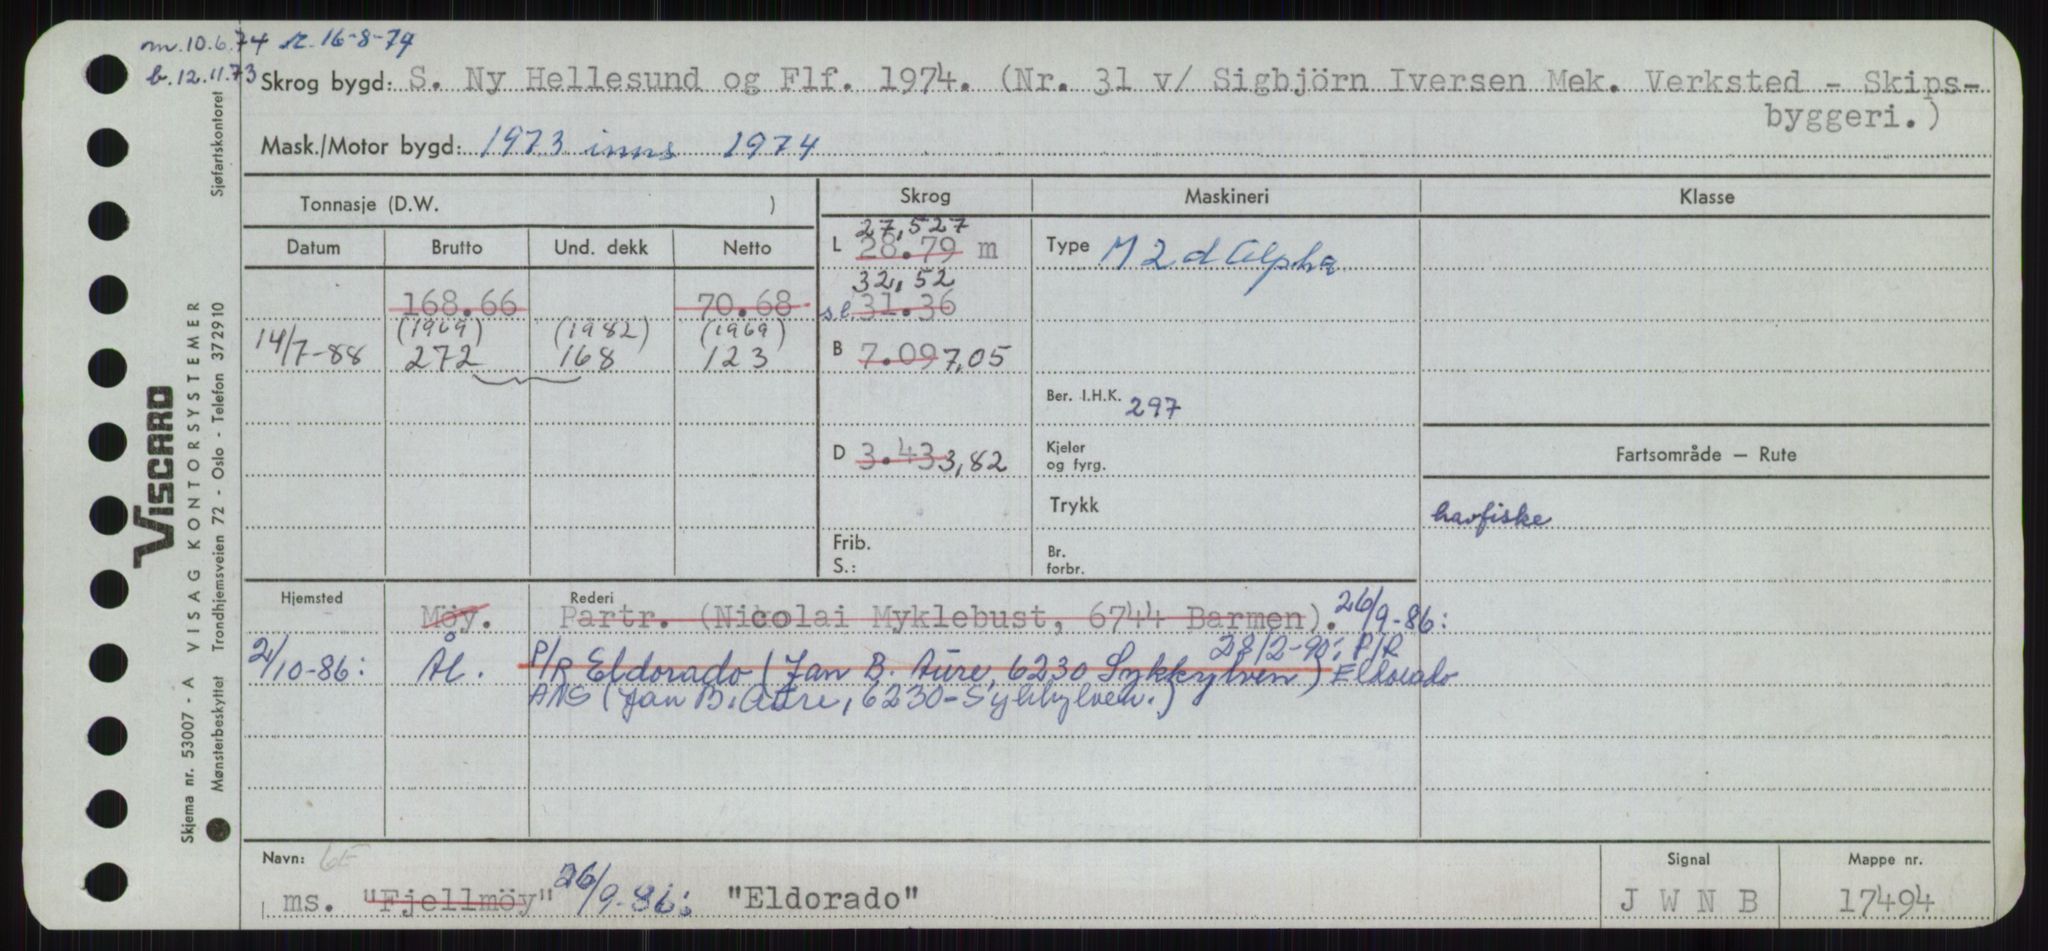 m. 10.6.74 r. 16-8-74
b. 12.11.73
Skrog bygd: S. Ny Hellesund og Flf. 1974. (Nr. 31 v/ Sigbjörn Iversen Mek. Verksted - Skips-
byggeri.)
Mask./Motor bygd: 1973 inns 1974
Tonnasje (D.W. )
Skrog
Maskineri
Klasse
Datum Brutto Und. dekk Netto
L 27,527
28.79 m
Type M 2 d Alpha
32,52
168.66 70.68 s.l. 31.36
(1969) (1982) (1969)
14/7-88 272 168 123
B 7.09 7,05
Ber. I.H.K. 297
D 3.43 3,82
Kjeler
og fyrg.
Fartsområde — Rute
Trykk
havfiske
Frib.
S.:
Br.
forbr.
Hjemsted Rederi
Möy. Partr. (Nicolai Myklebust, 6744 Barmen). 26/9-86:
28/2-90: P/R
2/10-86: Ål. P/R Eldorado (Jan B. Aure, 6230 Sykkylven) Eldorado
ANS (Jan B. Aure, 6230-Sykkylven.)
Navn: Signal Mappe nr.
ms. "Fjellmöy" 26/9-86: "Eldorado" J W N B 17494
VISCARD
Skjema nr. 53007 - A VISAG KONTORSYSTEMER Sjøfartskontoret
Mønsterbeskyttet Trondhjemsveien 72 - Oslo - Telefon 372910